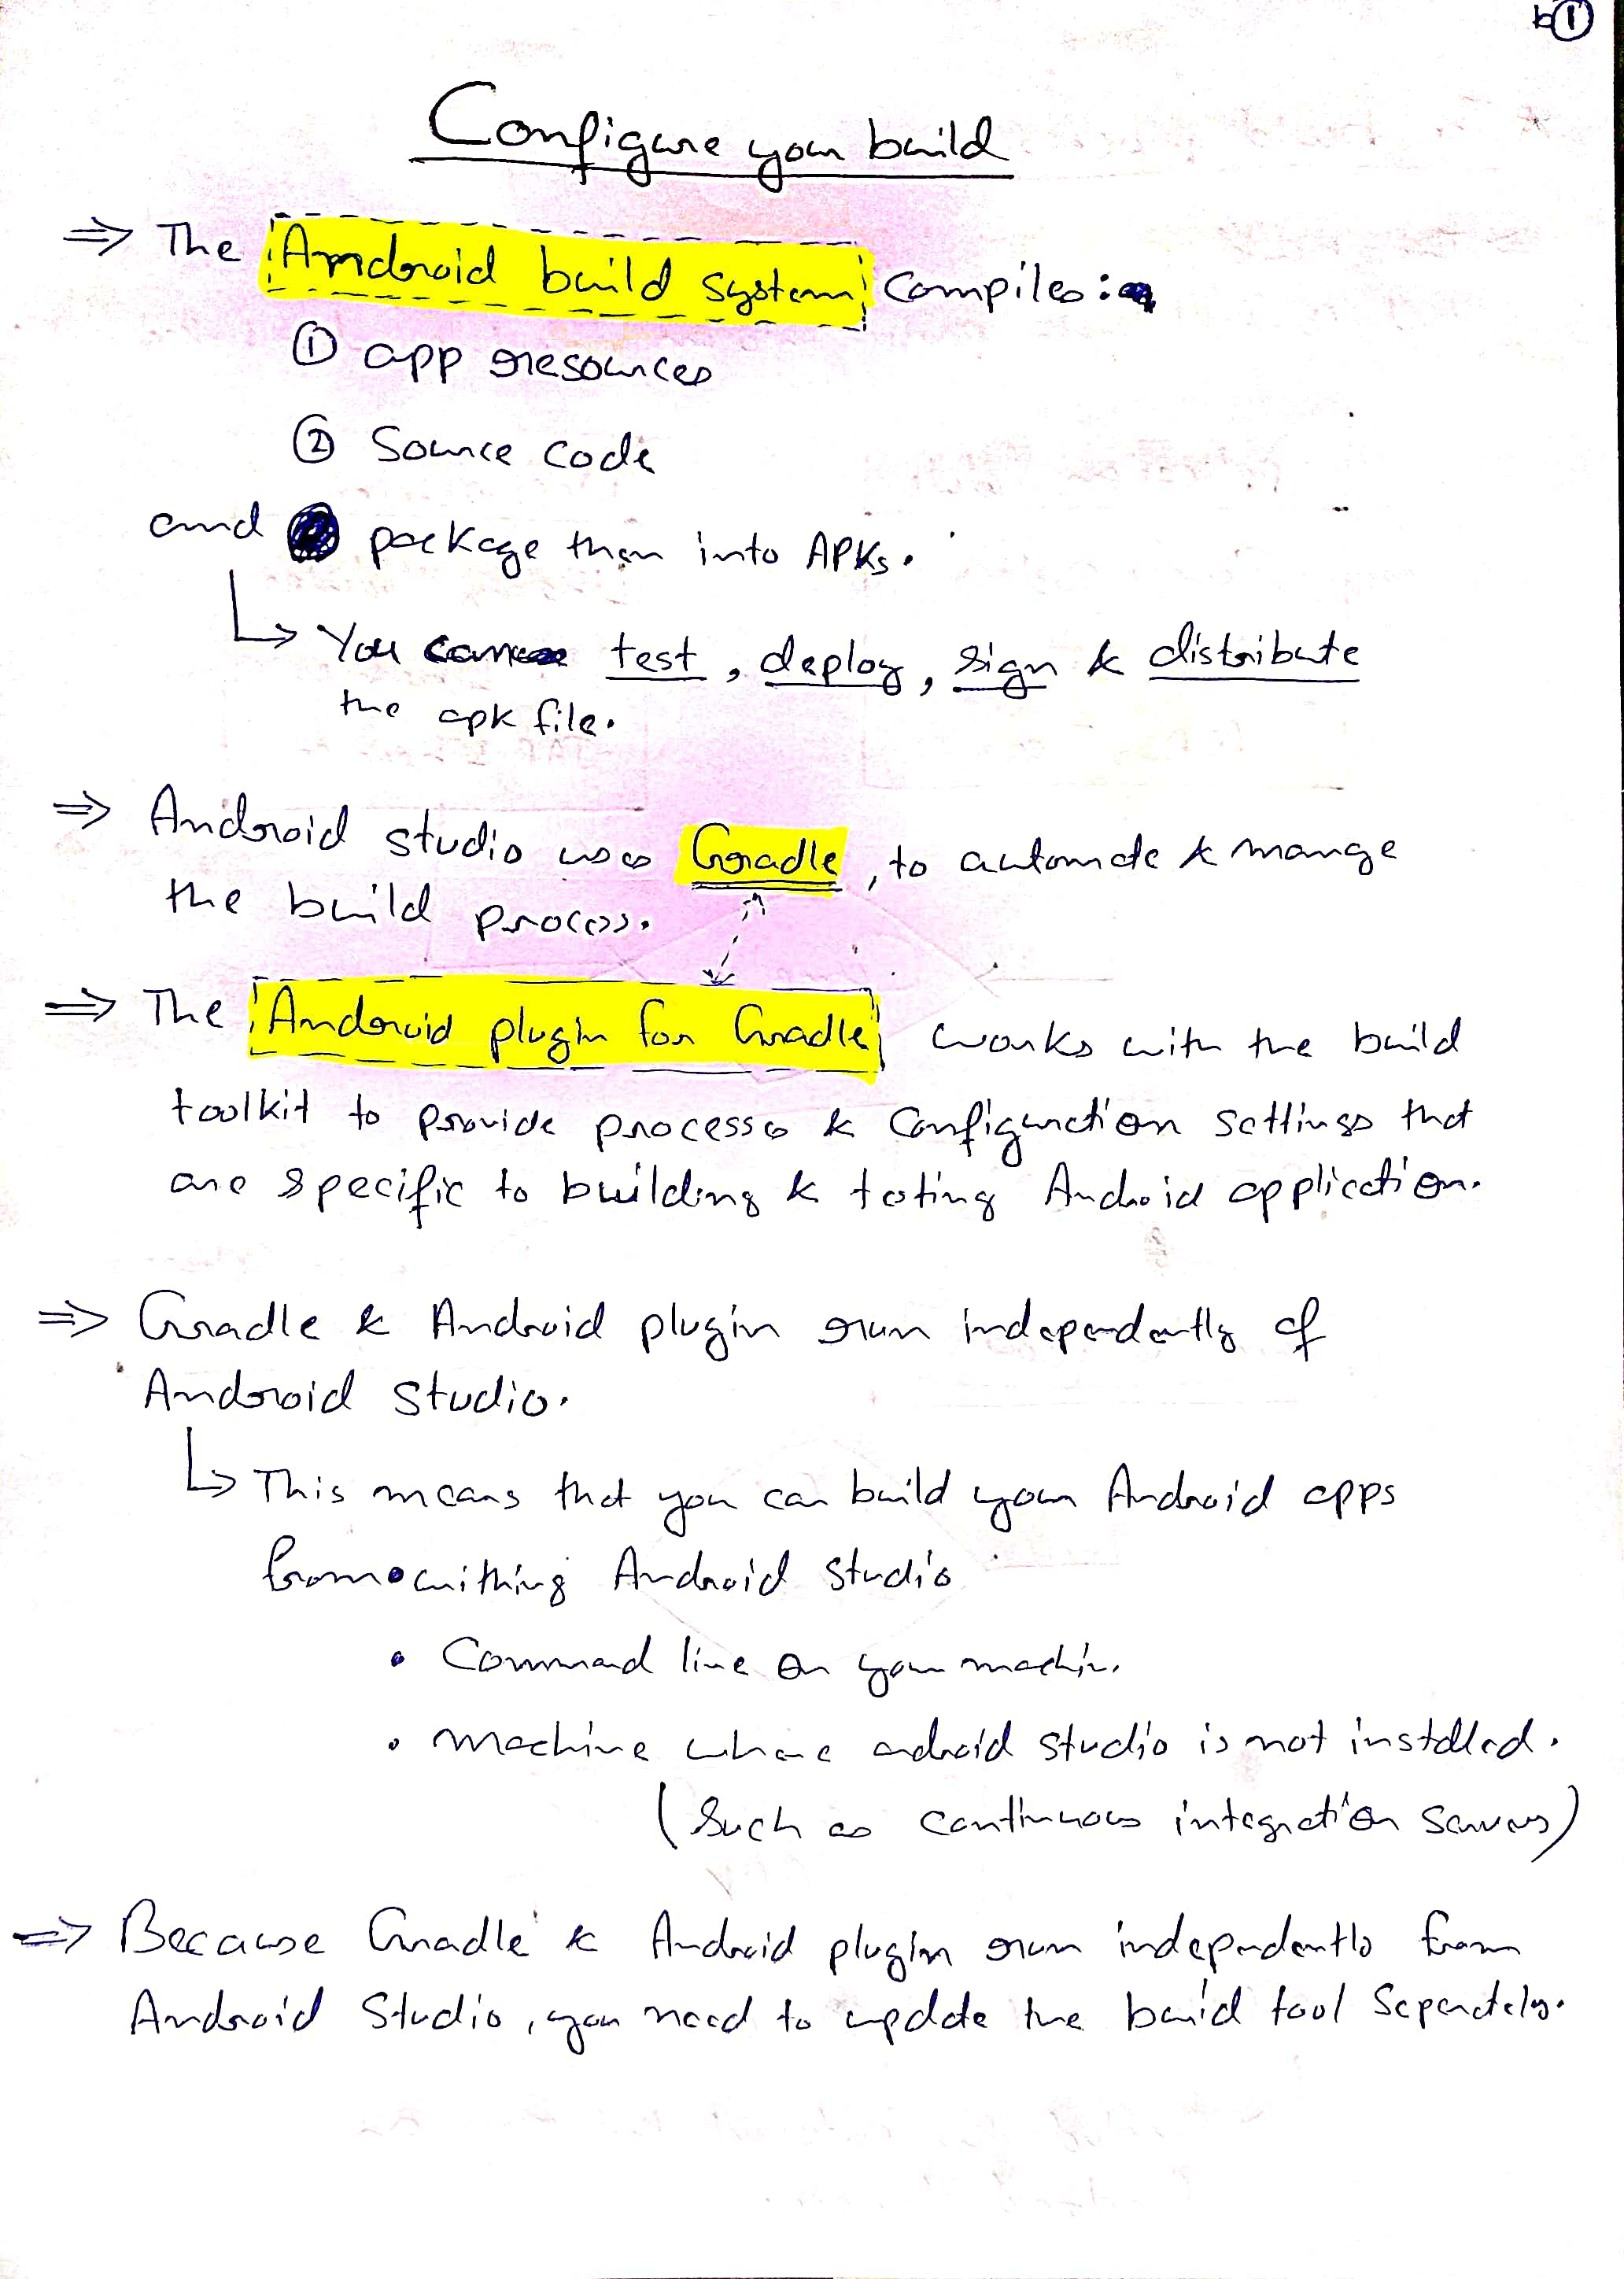 b①
Configure your build
⇒ The Android build system compiles:
① app resources
② Source code
and package them into APKs.
↳ You can test, deploy, sign & distribute
the apk file.
⇒ Android studio uses Gradle, to automate & mange
the build process.
⇒ The Android plugin for Gradle works with the build
toolkit to provide process & Configuration settings that
are specific to building & testing Android application.
⇒ Gradle & Android plugin run independently of
Android Studio.
↳ This means that you can build your Android apps
from withing Android Studio
• Command line on your machin.
• Machine where android studio is not installed.
(Such as continuous integration servers)
⇒ Because Gradle & Android plugin run independently from
Android Studio, you need to update the build tool Separately.